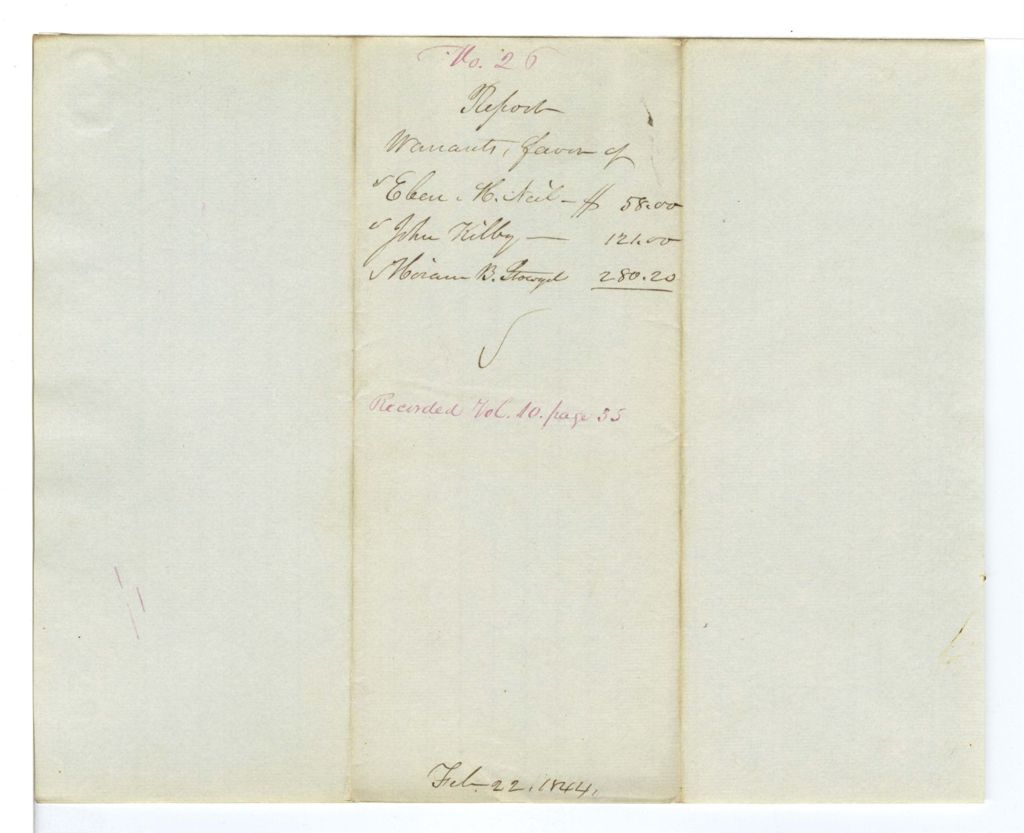 No. 26
Report
Warrants, favor of
Eben M. Neil - $ 58.00
John Kilby — 121.00
B. 280.20
Recorded Vol. 10. page 35
Feb. 22. 1844.